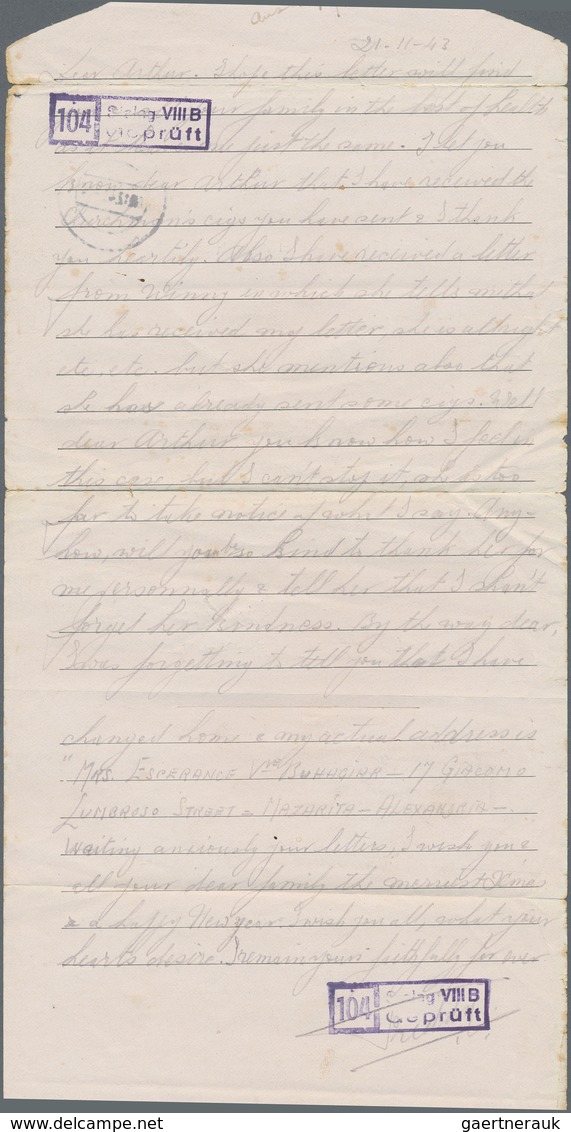 21-11-43
Dear Arthur. I hope this letter will find
your family in the best of health
104 Stalag VIII B
Geprüft
just the same. I let you
know dear Arthur that I have received the
Churchman's cigs you have sent & I thank
you heartily. Also I have received a letter
from Winny in which she tells me that
she has received my letter, she is allright
etc, etc. but she mentions also that
she have already sent some cigs. Well
dear Arthur you know how I feel in
this case, but I can't stop it, she is too
far to take notice of what I say. Any-
how, will you be so kind to thank her for
me personnally & tell her that I shan't
forget her kindness. By the way dear,
I was forgetting to tell you that I have
changed home & my actual address is
"Mrs. ESPERANCE Vve BUHAGIAR - 17 GIACOMO
LUMBROSO STREET = MAZARITA - ALEXANDRIA -.
Waiting anciously your letters, I wish you &
all your dear family the merriest Xmas
& a happy New year. I wish you all, what your
hearts desire. I remain yours faithfully for ever
104 Stalag VIII B
Geprüft
gaertnerauk @ delcampe.net